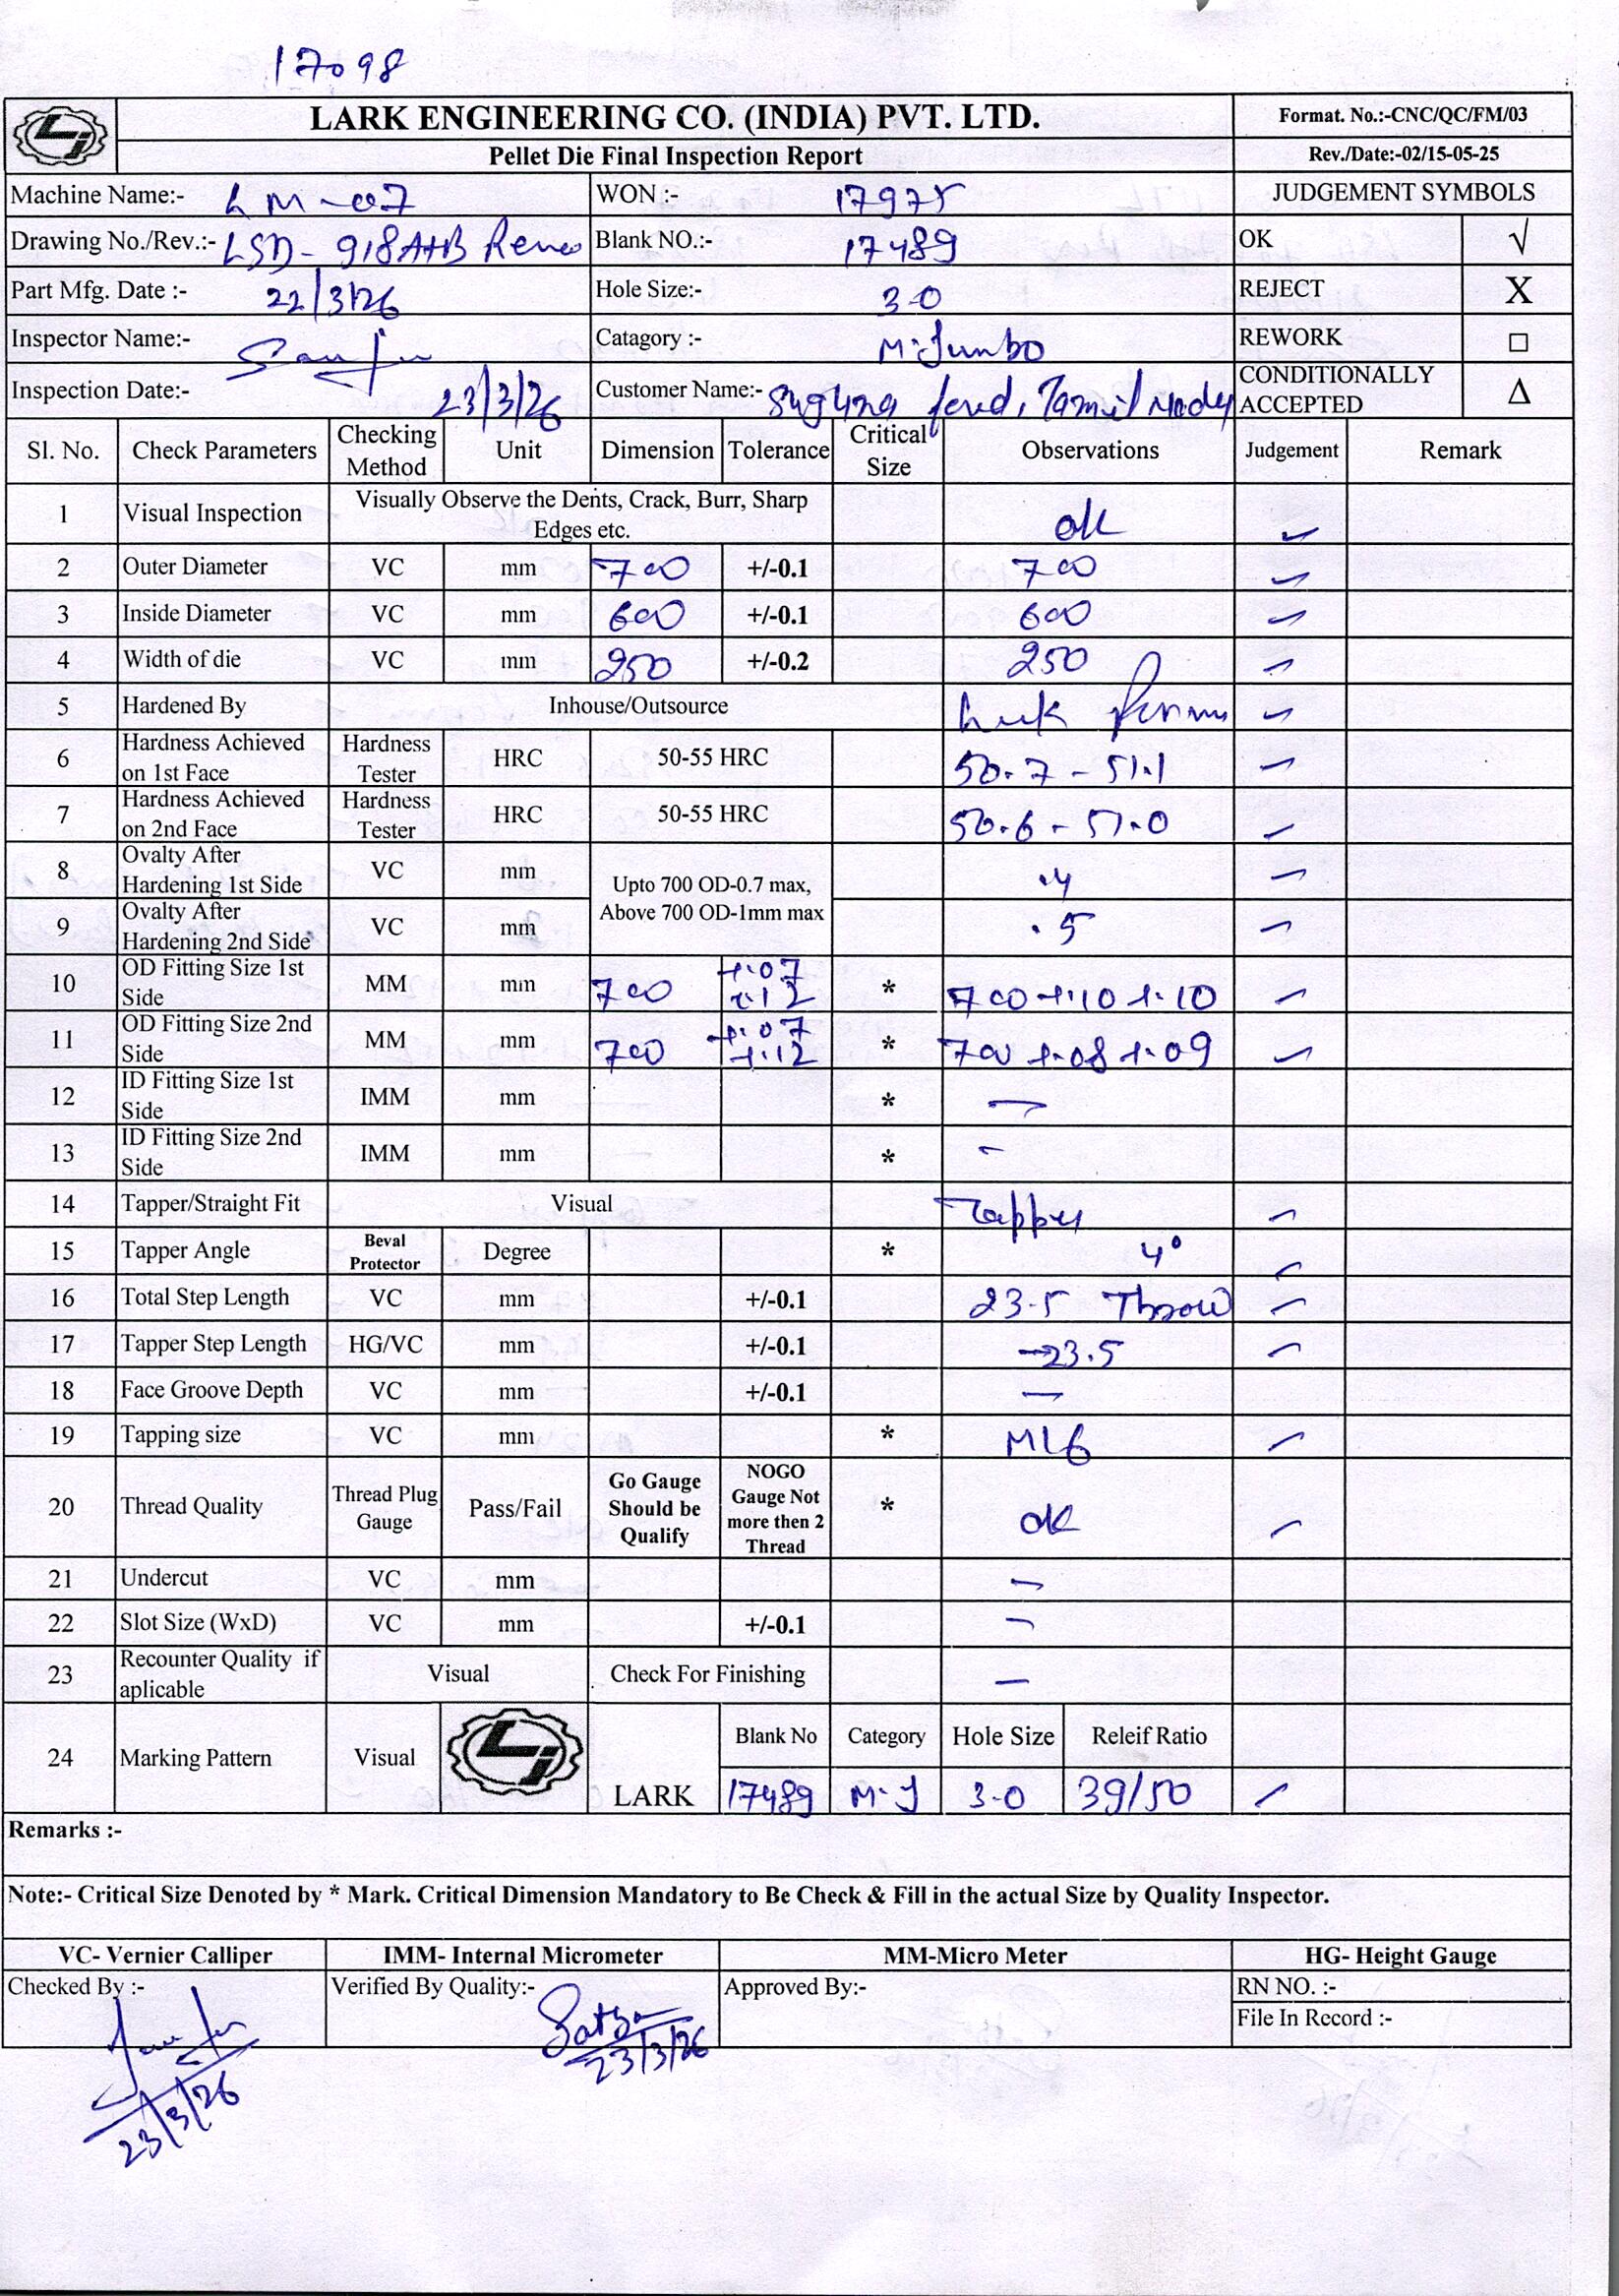 17098
LARK ENGINEERING CO. (INDIA) PVT. LTD.
Format. No.:-CNC/QC/FM/03
Pellet Die Final Inspection Report
Rev./Date:-02/15-05-25
Machine Name:- LM-07 WON :- 17975 JUDGEMENT SYMBOLS
Drawing No./Rev.:- LSD-918A+B Blank NO.:- 17489 OK √
Part Mfg. Date :- 22/3/26 Hole Size:- 3.0 REJECT X
Inspector Name:- Catagory :- M.Jumbo REWORK □
Inspection Date:- 23/3/26 Customer Name:- Tamil Nadu CONDITIONALLY ACCEPTED Δ
Sl. No. Check Parameters Checking Method Unit Dimension Tolerance Critical Size Observations Judgement Remark
1 Visual Inspection Visually Observe the Dents, Crack, Burr, Sharp Edges etc. ok
2 Outer Diameter VC mm 700 +/-0.1 700
3 Inside Diameter VC mm 600 +/-0.1 600
4 Width of die VC mm 250 +/-0.2 250
5 Hardened By Inhouse/Outsource
6 Hardness Achieved on 1st Face Hardness Tester HRC 50-55 HRC 50.7 - 51.1
7 Hardness Achieved on 2nd Face Hardness Tester HRC 50-55 HRC 50.6 - 51.0
8 Ovalty After Hardening 1st Side VC mm Upto 700 OD-0.7 max, Above 700 OD-1mm max .4
9 Ovalty After Hardening 2nd Side VC mm .5
10 OD Fitting Size 1st Side MM mm 700 +.07 +.12 * 700 +.10 +.10
11 OD Fitting Size 2nd Side MM mm 700 +.07 +.12 * 700 +.08 +.09
12 ID Fitting Size 1st Side IMM mm * —
13 ID Fitting Size 2nd Side IMM mm * -
14 Tapper/Straight Fit Visual Tapper
15 Tapper Angle Beval Protector Degree * 4°
16 Total Step Length VC mm +/-0.1 23.5 Throw
17 Tapper Step Length HG/VC mm +/-0.1 23.5
18 Face Groove Depth VC mm +/-0.1 —
19 Tapping size VC mm * M16
20 Thread Quality Thread Plug Gauge Pass/Fail Go Gauge Should be Qualify NOGO Gauge Not more then 2 Thread * ok
21 Undercut VC mm —
22 Slot Size (WxD) VC mm +/-0.1 —
23 Recounter Quality if aplicable Visual Check For Finishing —
24 Marking Pattern Visual LARK Blank No Category Hole Size Releif Ratio
17489 M.J 3.0 39/50
Remarks :-
Note:- Critical Size Denoted by * Mark. Critical Dimension Mandatory to Be Check & Fill in the actual Size by Quality Inspector.
VC- Vernier Calliper IMM- Internal Micrometer MM-Micro Meter HG- Height Gauge
Checked By :- Verified By Quality:- Approved By:- RN NO. :-
File In Record :-
Satya
23/3/26
23/3/26